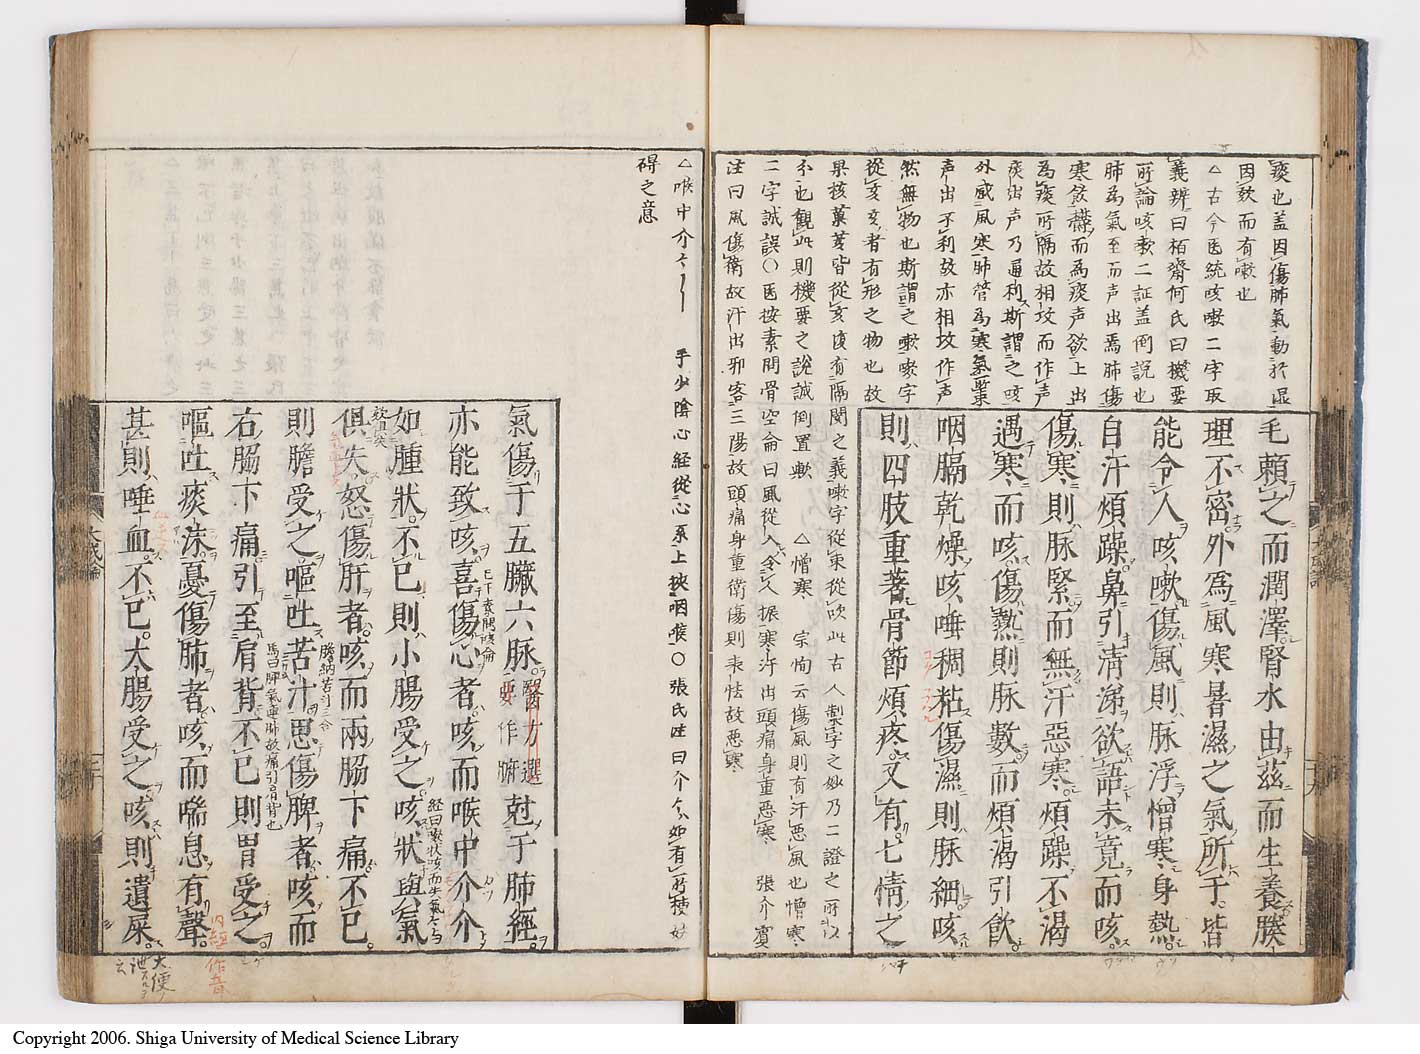 痰也盖因傷肺氣動於湿
因欬而有嗽也
△古今医統咳嗽二字取
義辨曰栢齋何氏曰機要
所論咳嗽二証盖倒説也
肺為氣至而声出焉肺傷
寒飲欝而為痰声欲上出
為痰所隔故相攻而作声
痰出声乃通利斯謂之咳
外感風寒肺管為寒氣
声出不利故亦相攻作声
然無物也斯謂之嗽嗽字
從亥亥者有形之物也故
果核菓荄皆從亥有隔閡之義嗽字從束從吹此古人製字之妙乃二證之所以
不也觀此則機要之説誠倒置歟 △憎寒 宗恂云傷風則有汗悪風也憎寒
二字誠誤○医按素問骨空侖曰風從入令人振寒汗出頭痛身重悪寒 張介賓
注曰風傷衛故汗出邪客三陽故頭痛身重衛傷則表怯故悪寒
毛頼之而潤澤腎水由茲而生養腠
理不密外為風寒暑濕之氣所干皆
能令人咳嗽傷風則脉浮憎寒身熱
自汗煩躁鼻引清涕欲語未竟而咳
傷寒則脉緊而無汗惡寒煩躁不渴
遇寒而咳傷熱則脉數而煩渴引飲
咽膈乾燥咳唾稠粘傷濕則脉細咳
則四肢重著骨節煩疼又有七情之
△喉中介々 手少陰心經從心系上挾咽喉○張氏註曰介々如有所梗妨
碍之意
氣傷于五臟六脉尅于肺經
醫方選要作腑
亦能致咳喜傷心者咳而喉中介介
已下素問咳侖
如腫狀不已則小腸受之咳狀與氣
經曰嗽状咳而失氣云々
俱失怒傷肝者咳而兩脇下痛不已
則膽受之嘔吐苦汁思傷脾者咳而
右脇下痛引至肩背不已則胃受之
馬曰脾氣連肺故痛引肩背也
嘔吐痰沫憂傷肺者咳而喘息有聲
內經作音
甚則唾血不已大腸受之咳則遺屎
大便
大成論
三十
Copyright 2006. Shiga University of Medical Science Library